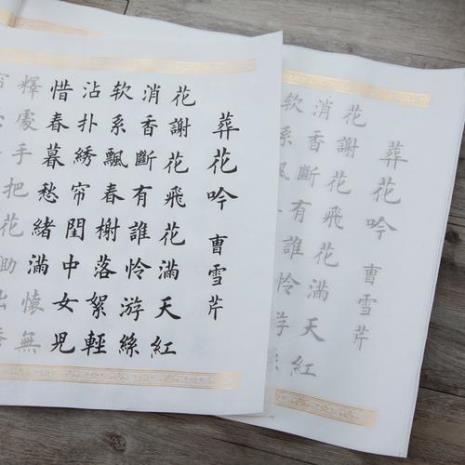 葬花吟 曹雪芹
花謝花飛花滿天紅
消香斷有誰憐游絲
软系飄春榭落絮輕
沾扑綉帘閨中女兒
惜春暮愁緒滿懷無
釋處手把花
葬花吟 曹雪芹
花謝花飛花滿天紅
消香斷有誰憐游絲
软系飄